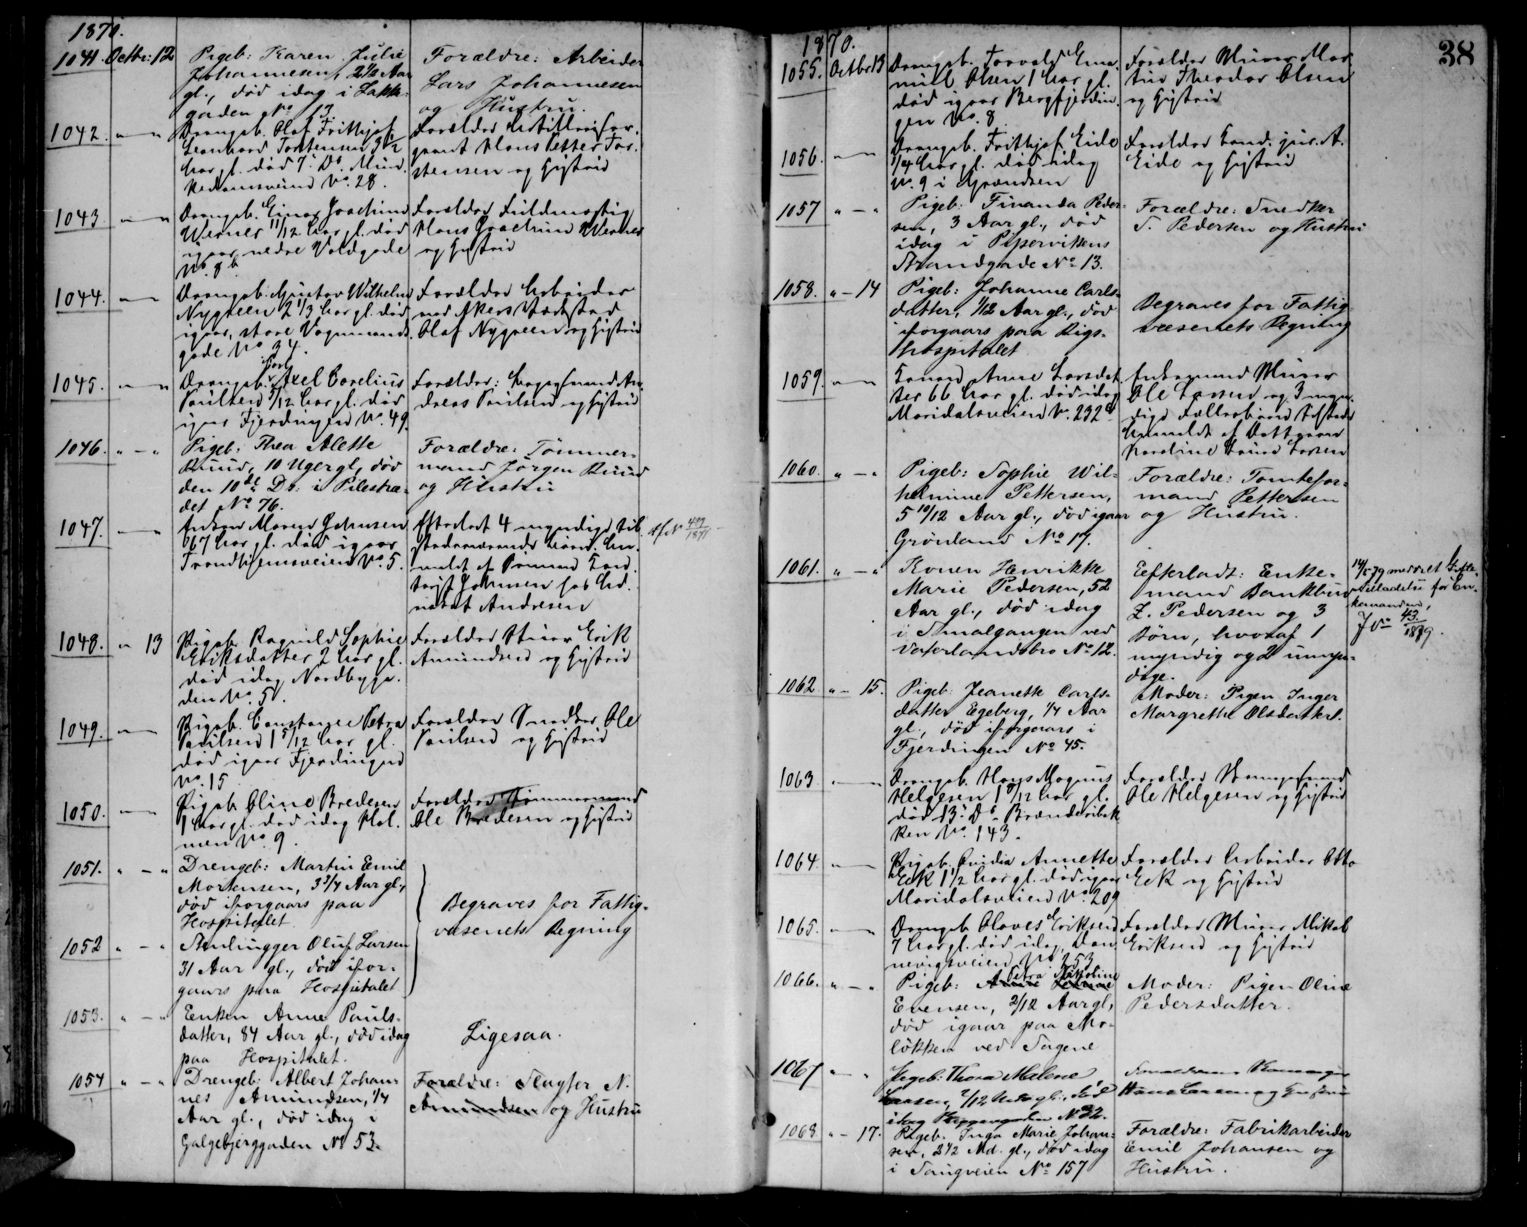 1870.
1041. Octbr: 12 Pigeb: Karen Julie
Johannesen, 2½ Aar
gl., død idag i Lakke-
gaden No 17
Forældre: Arbeider
Lars Johannesen
og Hustru.
1042. " Drengeb. Olaf Frithjof
Leonhard Torstensen 3½
Aar gl. død 7de Ds. Mun
kedamsveien No. 28.
Forældre Artillerifor.
Hans Petter Tor-
stensen og Hustru
1043 " Drengeb. Einar Joachim
Werner 11/12 Aar gl. død
igaar nedre Voldgade
No. 8 b.
Forældre Fuldmægtig
Hans Joachim Werner
og Hustru
1044. " Drengeb. Gustav Wilhelm
Nygreen 2 1/3 Aar gl. død
igaar, store Vognmands
gade No 34.
Forældre Arbeider
ved Akers
Olaf Nygreen og Hustru
1045. " Drengeb. Axel Corelius
Paulsen /12 Aar gl. død
igaar Fjerdingen No. 49.
Forældre:
dreas Paulsen og Hustru
1046 " Pigeb: Thea Alette
Ruud, 10 Uger gl., død
den 10de Ds: i Pilestræ-
det No 76.
Forældre: Tømmer-
mand Jørgen Ruud
og Hustru
1047. " Enken Maren Johnsen
67 Aar gl. død igaar
Trondhjemsveien No. 5.
Efterladt 4 myndige tilst
Andresen
Jf. No 499/1871
1048. " 13 Pigeb. Ragnild Sophie
Eriksdatter 2 Aar gl.
død idag Nordbyga-
den No. 5.
Forældre Murer Erik
Amundsen og Hustru
1049. " Pigeb. Constance Petra
Paulsen 1 5/12 Aar gl.
død igaar Fjerdingen
No. 15
Forældre Snedker Ole
Paulsen og Hustru
1050. " Pigeb. Oline Bredesen
1 Aar gl. død idag Hol-
men No. 9.
Forældre Tømmermand
Ole Bredesen og Hustru
1051. " Drengeb: Martin Emil
Mortensen, 3 3/4 Aar gl.,
død iforgaars paa
Hospitalet.
1052 " Oluf Larsen
31 Aar gl., død ifor-
gaars paa Hospitalet
Begraves for Fattig-
væsenets Regning
1053. " Enken Anne Pauls-
datter, 84 Aar gl., død idag
paa Hospitalet.
Ligesaa.
1054 " Drengeb: Albert Johan-
nes Amundsen, 1/4
Aar gl., død idag i
Galgebjerggaden No 53.
Forældre: Slagter N.
Amundsen og Hustru
38
1870.
1055. Octbr. 13 Drengeb. Torvald Ema-
nuel Olsen 1 Aar gl.
død igaar Bergfjerdin-
gen No. 8
Forældre Murer Mar
tin Theodor Olsen
og Hustru
1056. " Drengeb. Frithjof Eide
1/4 Aar gl. død idag
No. 9 i Grændsen
Forældre Cand. jur. A.
Eide og Hustru
1057 " Pigeb: Finanda Peder-
sen, 3 Aar gl., død
idag i Pipervikens
Strandgade No 13.
Forældre: Snedker
T. Pedersen og Hustru
1058. " 14 Pigeb: Johanne Carls-
datter, 1/12 Aar gl., død
iforgaars paa Rigs-
hospitalet
Begraves for Fattig-
væsenets Regning
1059. " Anne Larsdat
ter 66 Aar gl. død idag
Maridalsveien No. 232
Enkemand Murer
Ole Larsen og 3 myn-
dige
Anmeldt af Datteren
Karoline Larsen
1060. " Pigeb: Sophie Wil-
helmine Pettersen,
5 10/12 Aar gl., død igaar
Grønland No 17.
Forældre: Tomtefor-
mand Pettersen
og Hustru.
1061. " Konen Henrikke
Marie Pedersen, 52
Aar gl., død idag
i Smalgangen ved
Vaterlandsbro No 12.
Efterladt: Enke-
mand Bankbud
Z. Pedersen og 3
Børn, hvoraf 1
myndig og 2 umyn-
dige.
14/5 79 meddelt Gifte-
Tilladelse for En-
kemanden,
Jno 43/1879.
1062 " 15. Pigeb: Jeanette Carls-
datter Egeberg, 1/4 Aar
gl., død iforgaars i
Fjerdingen No 45.
Moder: Pigen Inger
Margrethe Olsdatter.
1063 " Drengeb. Hans Magnus
Helgesen 1 8/12 Aar gl.
død 13. Ds. Brænderibak
ken No. 143.
Forældre
Ole Helgesen og Hustru
1064. " Pigeb. Annette
Eck 1 1/2 Aar gl. død igaar
Maridalsveien No. 209
Forældre Arbeider Otto
Eck og Hustru
1065. " Drengeb. Olaves Eriksen
7 Aar gl. død idag, Dan-
nevigsveien No 253
Forældre Murer Mikal
Eriksen og Hustru
1066. " Pigeb: Petra Nikoline
Evensen, 2/12 Aar gl.,
død igaar paa Mo-
løkken ved Sagene
Moder: Pigen Oline
Pedersdatter.
1067 " Pigeb: Thora Malene
Larsen, /12 Aar gl., død
idag No 32.
Hans Larsen og Hustru
1068 " 17. Pigeb. Inga Marie Johan-
sen, 2½ Md. gl., død idag
i Saugveien No 157
Forældre: Fabrikarbeider
Emil Johansen og
Hustru.